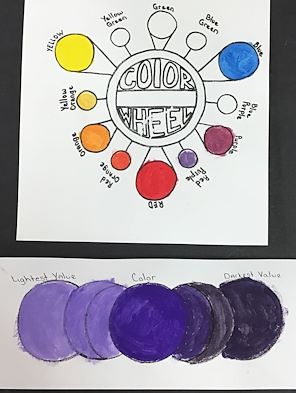 Green
Yellow
Green
Blue
Green
YELLOW
Blue
COLOR
WHEEL
Yellow
Orange
Blue
Purple
Orange
Purple
Red
Orange
Red
Purple
RED
Lightest Value
Color
Darkest Value